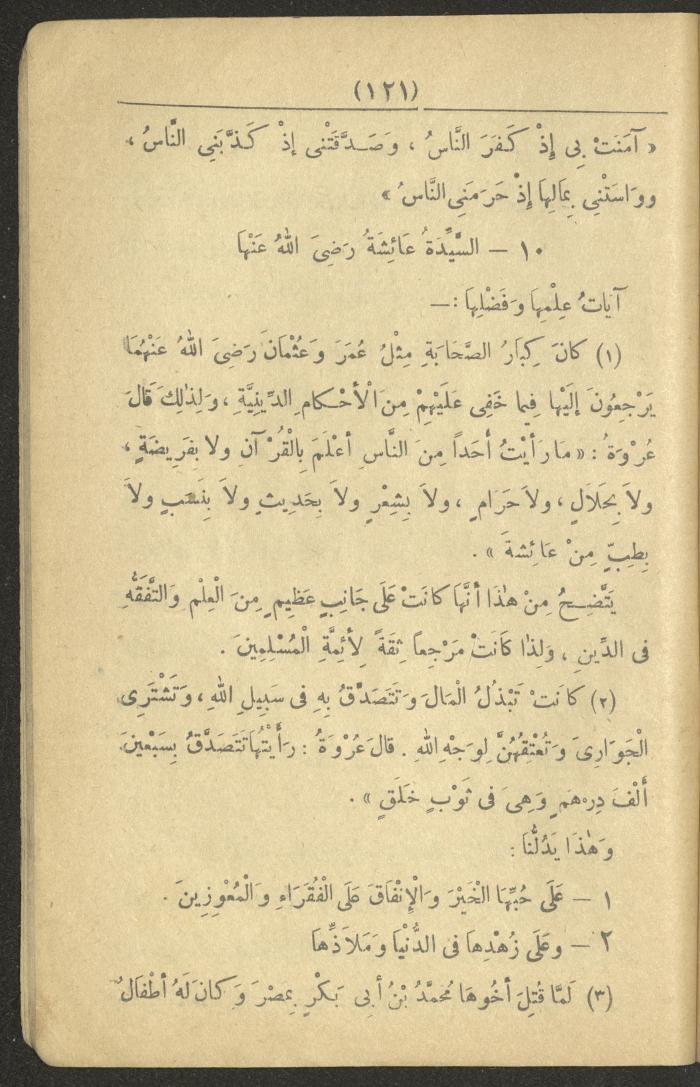 (١٢١)
« آمَنَتْ بِى إِذْ كَفَرَ النَّاسُ ، وَصَدَّقَتْنِى إِذْ كَذَّبَنِى النَّاسُ ،
ووَاسَتْنِى بِمَالِهَا إِذْ حَرَمَنِى النَّاسُ »
١٠ – السَّيِّدَةُ عَائِشَةُ رَضِىَ اللهُ عَنْهَا
آيَاتُ عِلْمِهَا وَفَضْلِهَا :–
(١) كانَ كِبَارُ الصَّحَابَةِ مِثْلُ عُمَرَ وَعُثْمَانَ رَضِىَ اللهُ عَنْهُمَا
يَرْجِعُونَ إِلَيْهَا فِيما خَفِى عَلَيْهِمْ مِنَ الْأَحْكامِ الدِّينِيَّةِ ، وَلِذٰلِكَ قَالَ
عُرْوَةُ : « مَا رَأَيْتُ أَحَداً مِنَ النَّاسِ أَعْلَمَ بِالْقُرْآنِ ولا بِفَرِيضَةٍ ،
ولاَ بِحَلاَلٍ ، ولاَ حَرَامٍ ، ولاَ بِشِعْرٍ ولاَ بِحَدِيثٍ ولاَ بِنَسَبٍ ولاَ
بِطِبٍّ مِنْ عَائِشَةَ » .
يَتَّضِحُ مِنْ هٰذَا أَنَّهَا كانَتْ عَلَى جَانِبٍ عَظِيمٍ مِنَ الْعِلْمِ وَالتَّفَقُّهِ
فى الدِّينِ ، وَلِذٰا كَانَتْ مَرْجِعاً ثِقَةً لِأَئِمَّةِ الْمُسْلِمِينَ .
(٢) كانَتْ تَبْذُلُ الْمَالَ وَتَتَصَدَّقُ بِهِ فى سَبِيلِ اللهِ ، وَتَشْتَرِى
الْجَوَارِىَ وَتُعْتِقُهُنَّ لِوَجْهِ اللهِ . قالَ عُرْوَةُ : رَأَيْتُهَا تَتَصَدَّقُ بِسَبْعِينَ
أَلْفَ دِرْهَمٍ وَهِىَ فى ثَوْبٍ خَلَقٍ » .
وَهٰذَا يَدُلُّنَا :
١ – عَلَى حُبِّهَا الْخَيْرَ وَالْإِنْفَاقَ عَلَى الْفُقَرَاءِ وَالْمُعْوِزِينَ .
٢ – وعَلَى زُهْدِهَا فى الدُّنْيَا وَمَلاَذِّهَا
(٣) لَمَّا قُتِلَ أَخُوهَا مُحَمَّدُ بْنُ أَبِى بَكْرٍ بِمِصْرَ وَكانَ لَهُ أَطْفَالٌ